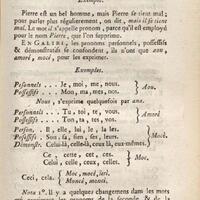 Exemple.
Pierre est un bel homme, mais Pierre se tient mal;
pour parler plus régulierement, on dit, mais il se tient
mal. Le mot il s'appelle pronom, parce qu'il est employé
pour le nom Pierre, que l'on supprime.
EN GALIBI, les pronoms personnels, possessifs
& démonstratifs se confondent, ils n'ont que aou,
amoré, mocé, pour les exprimer.
Exemples.
Personnels . . . . Je, moi, me, nous.
Possessifs . . . . Mon, ma, mes, nos.
Aou.
Nous, s'exprime quelquefois par ana.
Personnels . . . . Tu, toi, te, vous.
Possessifs . . . . Ton, ta, tes, vos.
Amoré
Person. . . Il, elle, lui, le, la, les.
Possessifs. Son, sa, sien, ses, leurs.
Démonstr. Celui-là, celle-là, ceux, eux-mêmes.
Mocé.
Ce, cette, cet, ces.
Celui, celle, ceux, celles.
Moc.
Ceci, cela.
Moc, mocé, ieri.
Moncé, monei.
Nota 1°. Il y a quelques changement dans les mots